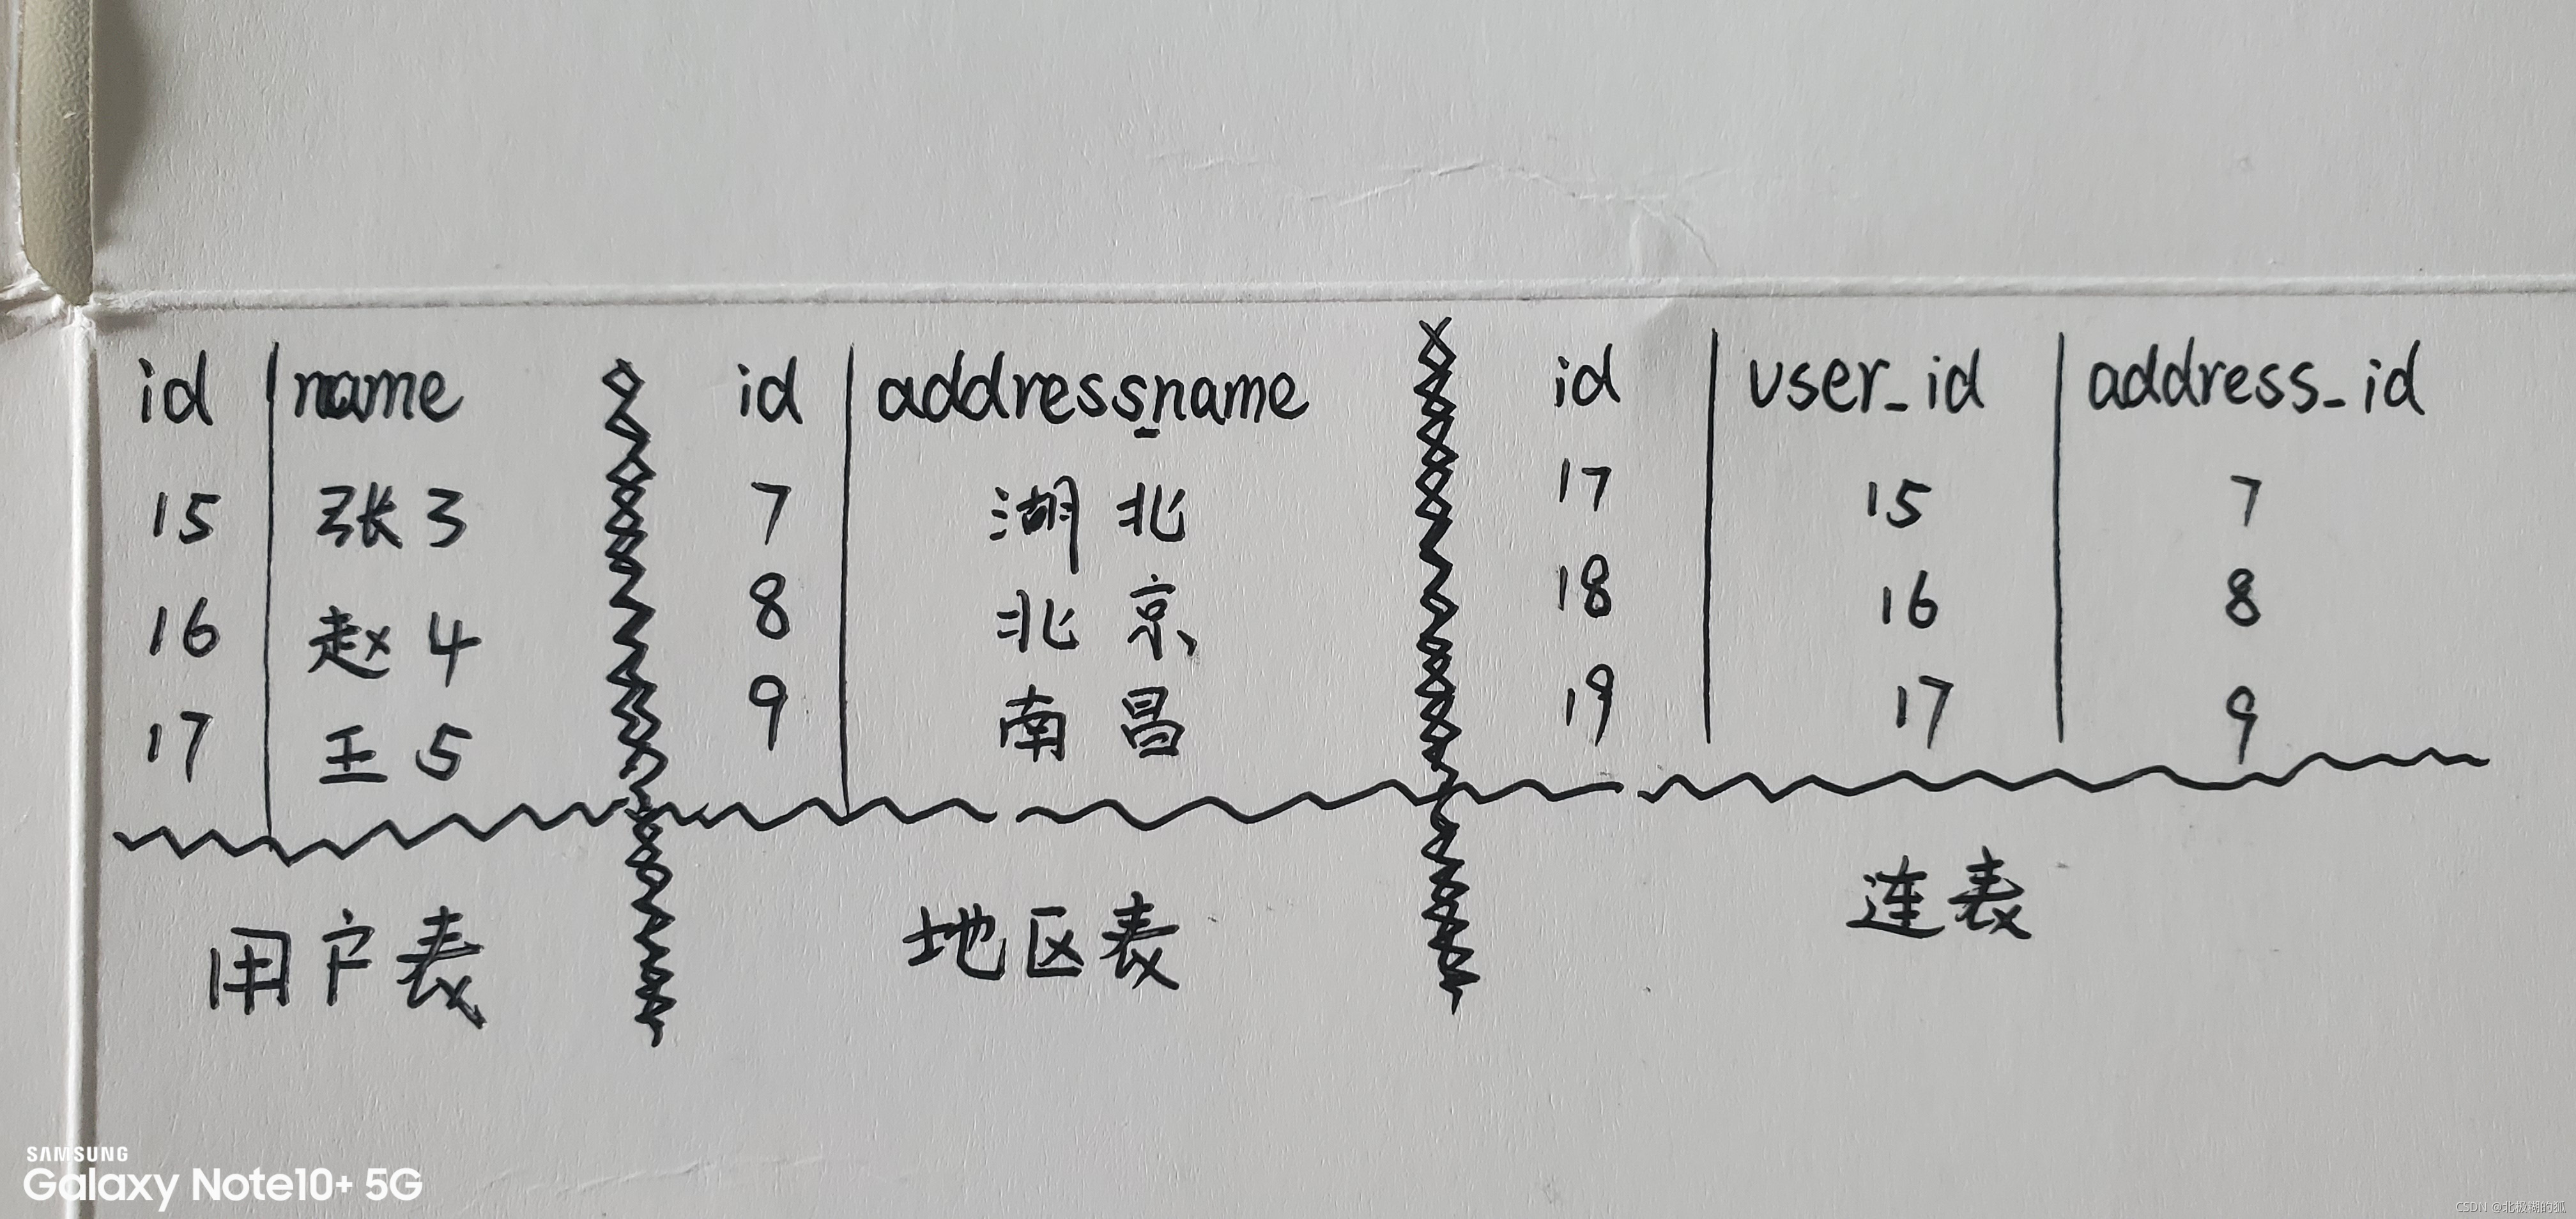 id name id address_name id user_id address_id
15 张3 7 湖北 17 15 7
16 赵4 8 北京 18 16 8
17 王5 9 南昌 19 17 9
用户表 地区表 连表
SAMSUNG
Galaxy Note10+ 5G
CSDN @北极糊的狐